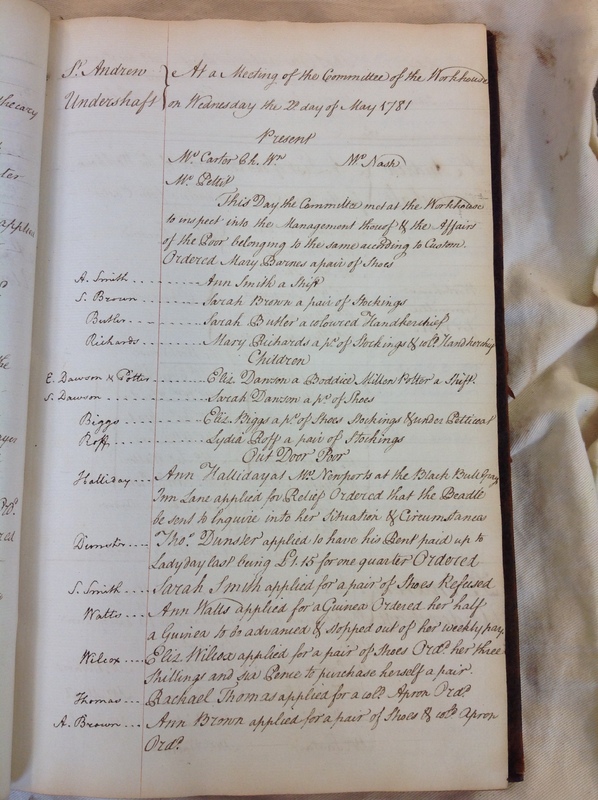 St. Andrew
Undershaft
At a Meeting of the Committee of the Workhouse
on Wednesday the 2d. day of May 1781
Present
Mr. Carter Ch. Wn. Mr. Nash
Mr. Pettit
This Day the Committee met at the Workhouse
to inspect into the Management thereof & the Affairs
of the Poor belonging to the same according to Custom.
Ordered Mary Barnes a pair of Shoes
A. Smith - - - - Ann Smith a Shift
S. Brown - - - - Sarah Brown a pair of Stockings
Butler - - - - Sarah Butler a coloured Handkerchief
Richards - - - - Mary Richards a pr. of Stockings & cold. Handkerchief
Children
E. Dawson & Potter - - - - Eliz. Dawson a Boddice, Millen Potter a Shift.
S. Dawson - - - - Sarah Dawson a pr. of Shoes
Biggs - - - - Eliz. Biggs a pr. of Shoes Stockings & under Petticoat
Roff - - - - Lydia Roff a pair of Stockings
Out Door Poor
Halliday - - - Ann Halliday at Mr. Newports at the Black Bull Grays
Inn Lane applied for Relief Ordered that the Beadle
be sent to Inquire into her Situation & Circumstances
Dunster - - - Thos. Dunster applied to have his Rent paid up to
Ladyday last being £1.15 for one quarter Ordered
S. Smith - - - Sarah Smith applied for a pair of Shoes Refused
Watts - - - Ann Watts applied for a Guinea Ordered her half
a Guinea to be advanced & stopped out of her weekly pay.
Wilcox - - - Eliz. Wilcox applied for a pair of Shoes Ordd. her three
Shillings and six Pence to purchase herself a pair.
Thomas - - - Rachael Thomas applied for a cold. Apron Ordd.
A. Brown - - - Ann Brown applied for a pair of Shoes & cold. apron
Ordd.